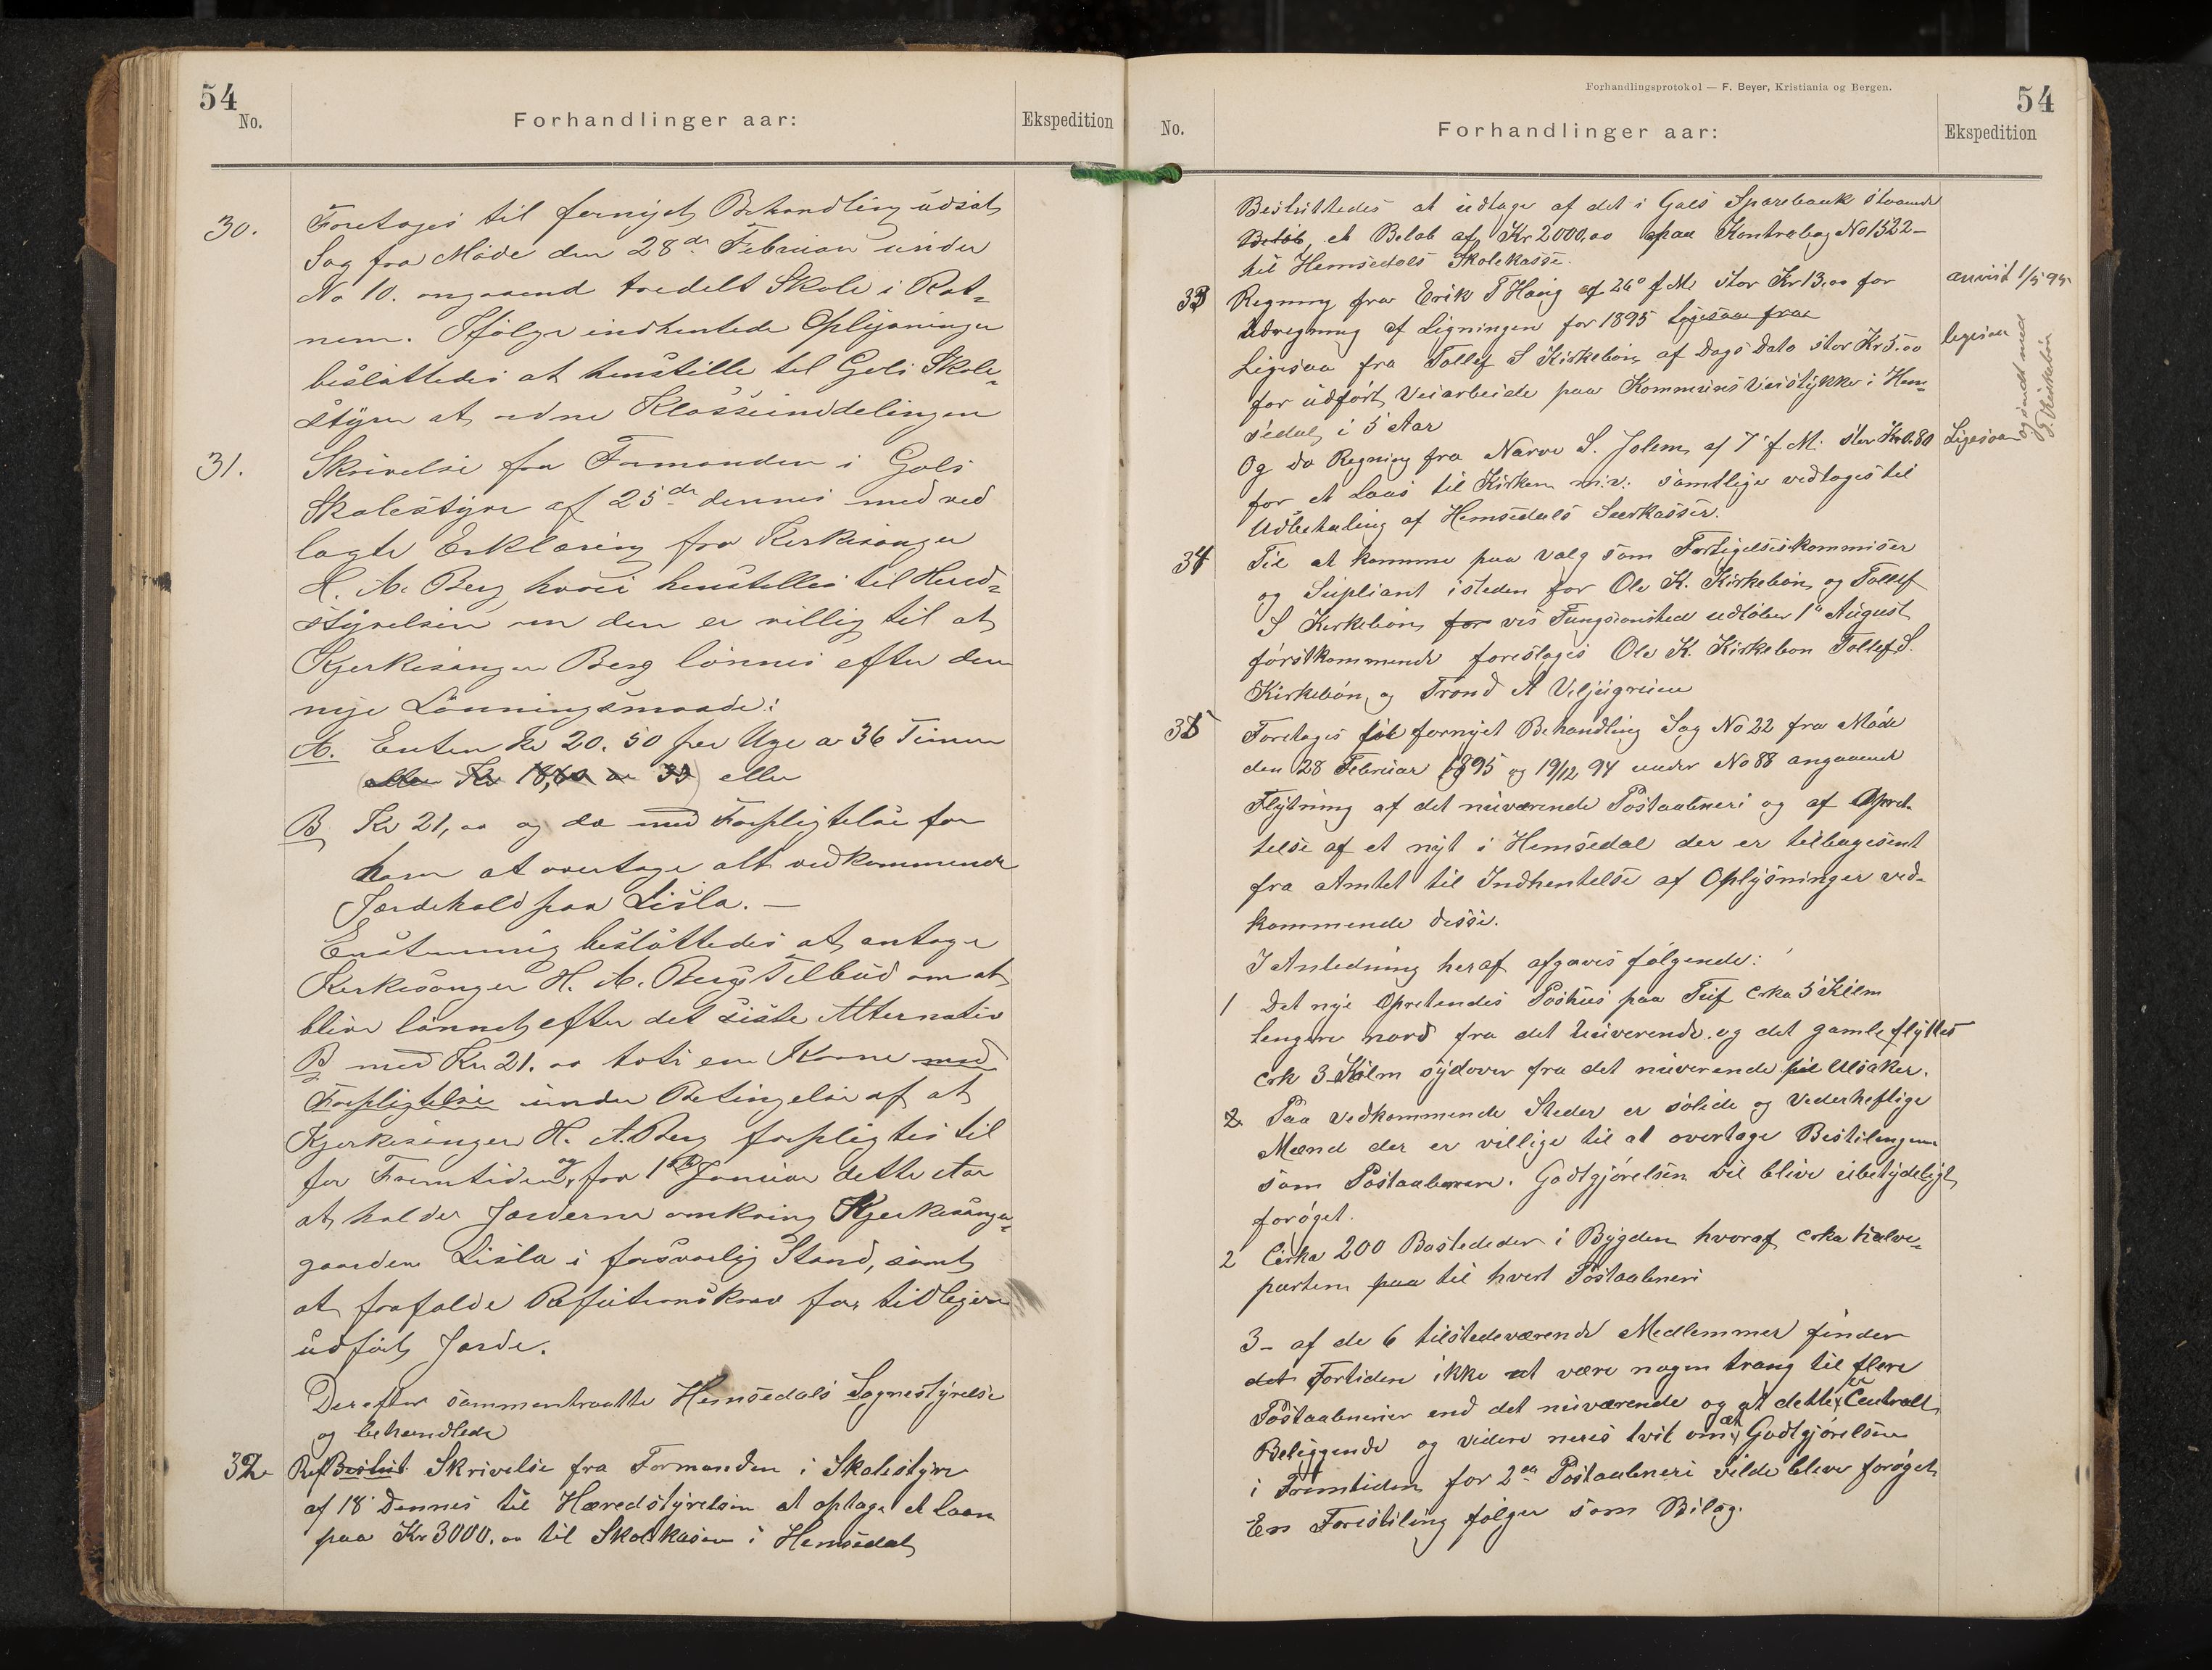 54
No.
Forhandlinger aar:
Ekspedition
30. Foretages til fornyet Behandling udsat
Sag fra Møde den 28de Februar under
No 10. angaaend todelt Skole i Rot-
nem. Ifølge indhentede Oplysninger
besluttedes at henstille til Gols Skole-
styre at ordne Klasseinddelingen
31. Skrivelse fra Formanden i Gols
Skolestyre af 25de dennes med ved
lagte Erklæring fra Kirkesanger
H. A. Berg hvori henstilles til Hered-
styrelsen om den er villig til at
Kjerkesanger Berg lønnes efter den
nye Lønningsmaade:
A. Enten Kr 20.50 per Uge a 36 Timer
(eller Kr 18,60 a 33) eller
B Kr 21,00 og da med Forpligtelse for
ham at overtage alt vedkommende
Jordehold paa Lisla. —
Enstemmig besluttedes at antage
Kirkesanger H. A. Bergs Tilbud om at
blive lønnet efter det siste Alternativ
B med Kr 21.00 toti en Krone med
Forpligtelse under Betingelse af at
Kjerkesanger H. A. Berg forpligtes til
for Fremtiden og fra 1ste Januar dette Aar
at holde Jorderne omkring Kjerkesanger-
gaarden Lisla i forsvarlig Stand, samt
at frafalde Refutionskrav for tidligere
udført Jorde.
Derefter sammentraatte Hemsedals Sognestyrelse
og behandlede
32 Ref Beslut Skrivelse fra Formanden i Skolestyre
af 18' Dennes til Hæredstyrelsen at optage et laan
paa Kr 3000.00 til Skolekasen i Hemsedal
Forhandlingsprotokol — F. Beyer, Kristiania og Bergen.
54
No.
Forhandlinger aar:
Ekspedition
Besluttedes at udtage af det i Gols Sparebank staaende
Beløb, et Beløb af Kr 2000,00 paa Kontrabog No 1522-
til Hemsedals Skolekasse.
33 Regning fra Erik T Haug af 26' f. M. stor Kr 13.00 for anvist 1/5 95
Udregning af Ligningen for 1895 Ligesaa fra
Ligesaa fra Tollef S Kirkebøn af Dags Dato stor Kr 5.00 ligesaa
for udført Veiarbeide paa Kommunes Veistykke i Hem-
sedal i 5 Aar
Og do Regning fra Narve S. Jolem af 7' f. M. stor Kr 0.80 Ligesaa
og sendt med
T. Kirkebøn
for et Laas til Kirken m.v. samtlige vedtages til
Udbetaling af Hemsedals Seerkasser.
34 Til at komme paa Valg som Forligelseskommisær
og Supliant isteden for Ole K. Kirkebøn og Tollef
S Kirkebøn for vis Fungsionsted udløber 1' August
førstkommende foreslages Ole K. Kirkebøn Tollef S.
Kirkebøn og Trond A Veljugreien
35 Foretages til fornyet Behandling Sag No 22 fra Møde
den 28 Februar 1895 og 19/12 94 under No 88 angaaend
Flytning af det nuværende Postaabneri og af Opret-
telse af et nyt i Hemsedal der er tilbagesent
fra Amtet til Indhentelse af Oplysninger ved-
kommende disse.
I Anledning heraf afgaves følgende:
1 Det nye Opretendes Poshus paa Tuf Cirka 5 Kilm
lengere nord fra det nuverende og det gamle flyttes
Cirk 3 Kilm sydover fra det nuverende til Ulsaker.
2 Paa vedkommende Steder er solide og Vederheftige
Mænd der er villige til at overtage Bestilingerne
som Postaabnere. Godtgjørelsen vil blive ubetydeligt
forøget.
2 Cirka 200 Bosteder i Bygden hvoraf cirka halve-
parten paa til hvert Postaabneri
3- af de 6 tilstedeværende Medlemmer finder
det Fortiden ikke at være nogen trang til flere
Postaabnerier end det nuværende og at dette er Centralt
Beliggende og videre neres tvil om at Godtgjørelsen
i Fremtiden for 2 Postaabneri vilde bleve forøget
En Forestiling følger som Bilag.